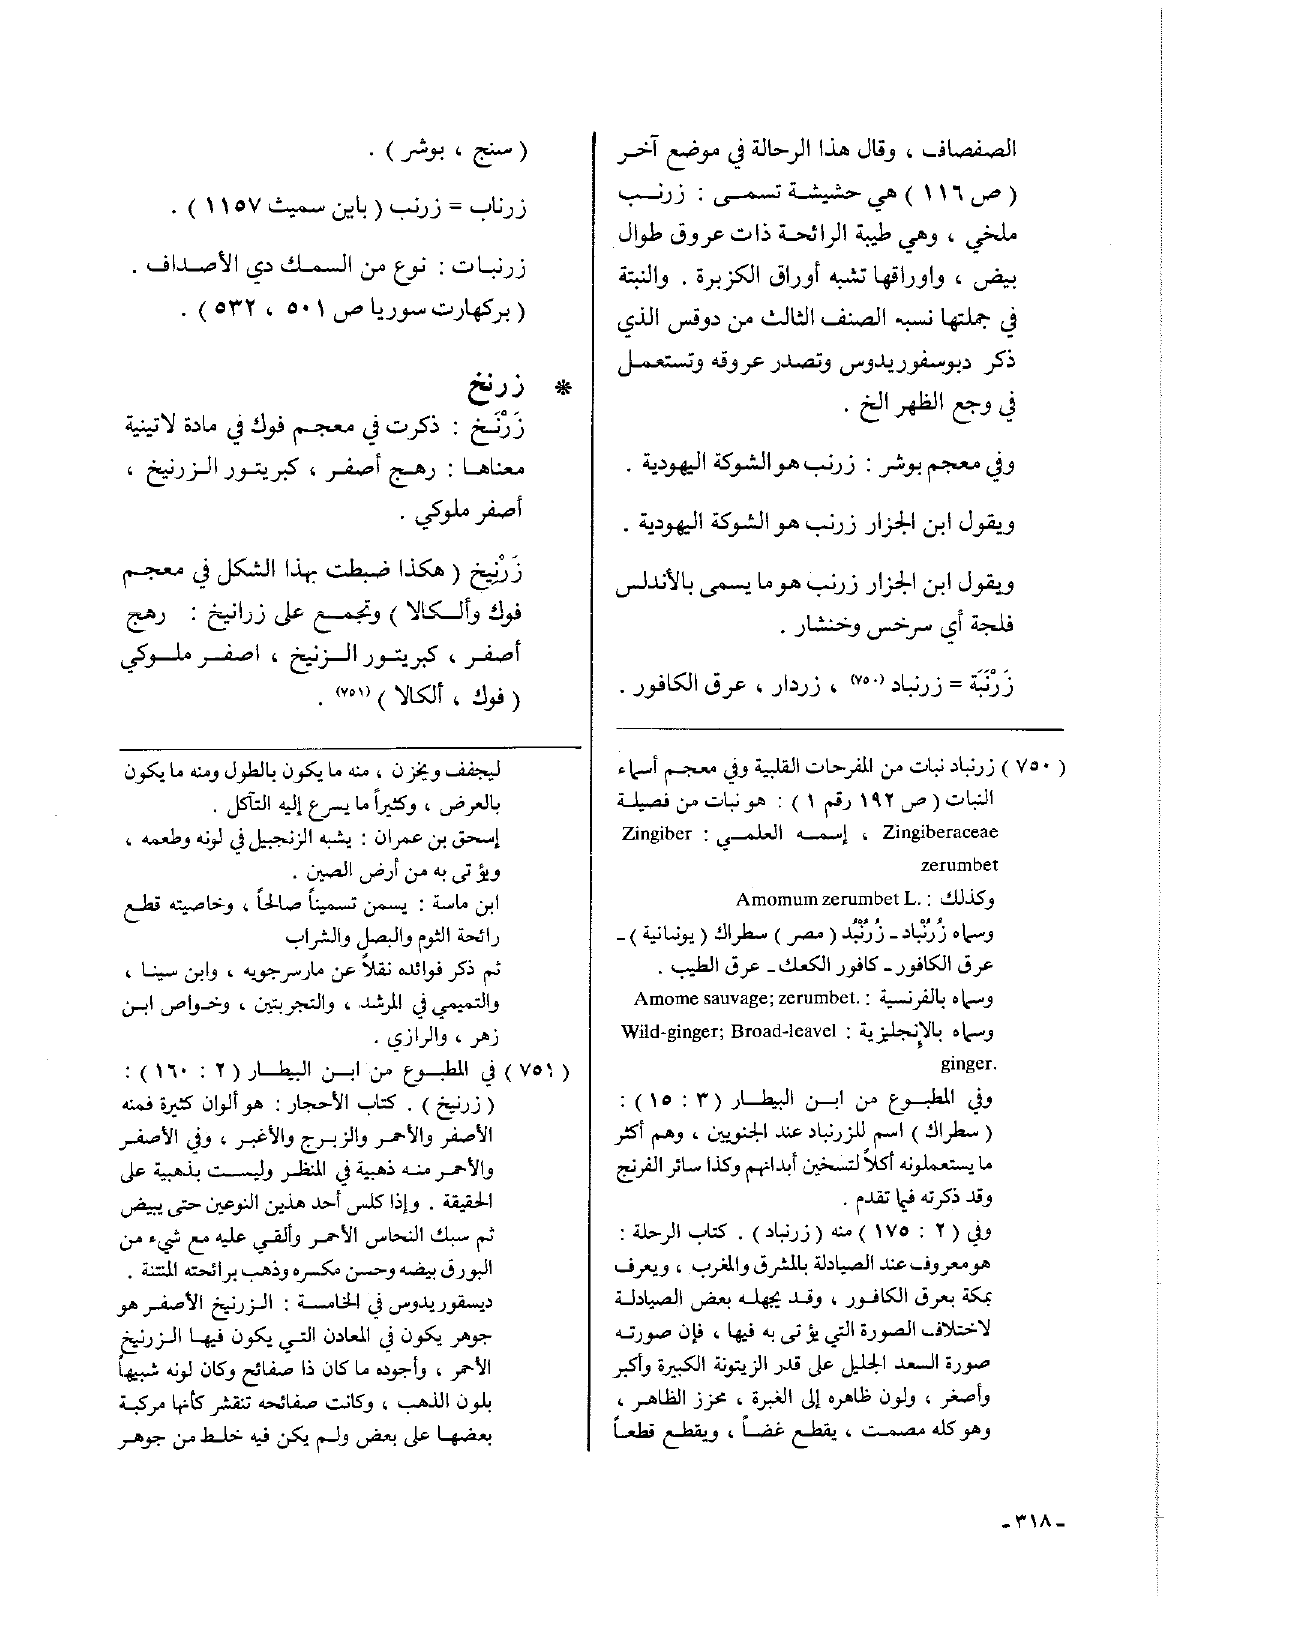 الصفصاف ، وقال هذا الرحالة في موضع آخر
( ص ١١٦ ) هي حشيشة تسمى : زرنب
ملخي ، وهي طيبة الرائحة ذات عروق طوال
بيض ، واوراقها تشبه أوراق الكزبرة . والنبتة
في جملتها نسبه الصنف الثالث من دوقس الذي
ذكر ديوسفوريدوس وتصدر عروقه وتستعمل
في وجع الظهر الخ .
وفي معجم بوشر : زرنب هو الشوكة اليهودية .
ويقول ابن الجزار زرنب هو الشوكة اليهودية .
ويقول ابن الجزار زرنب هو ما يسمى بالأندلس
فلجة أي سرخس وخنشار .
زَرْنَبَة = زرنباد (٧٥٠) ، زردار ، عرق الكافور .
( ٧٥٠ ) زرنباد نبات من المفرحات القلبية وفي معجم أسماء
النبات ( ص ١٩٢ رقم ١ ) : هو نبات من فصيلة
Zingiberaceae ، إسمه العلمي : Zingiber
zerumbet
وكذلك : Amomum zerumbet L.
وسماه زُرُنْباد - زُرُنْبُد ( مصر ) سطراك ( يونانية ) -
عرق الكافور - كافور الكعك - عرق الطيب .
وسماه بالفرنسية : Amome sauvage; zerumbet.
وسماه بالإنجليزية : Wild-ginger; Broad-leavel
ginger.
وفي المطبوع من ابن البيطار ( ٣ : ١٥ ) :
( سطراك ) اسم للزرنباد عند الجنويين ، وهم أكثر
ما يستعملونه أكلاً لتسخين أبدانهم وكذا سائر الفرنج
وقد ذكرته فيما تقدم .
وفي ( ٢ : ١٧٥ ) منه ( زرنباد ) . كتاب الرحلة :
هو معروف عند الصيادلة بالمشرق والمغرب ، ويعرف
بمكة بعرق الكافور ، وقد يجهله بعض الصيادلة
لاختلاف الصورة التي يؤتى به فيها ، فإن صورته
صورة السعد الجليل على قدر الزيتونة الكبيرة وأكبر
وأصغر ، ولون ظاهره إلى الغبرة ، محزز الظاهر ،
وهو كله مصمت ، يقطع غضاً ، ويقطع قطعاً
( سنج ، بوشر ) .
زرناب = زرنب ( باين سميث ١١٥٧ ) .
زرنبات : نوع من السمك دي الأصداف .
( بركهارت سوريا ص ٥٠١ ، ٥٣٢ ) .
* زرنخ
زَرْنَخ : ذكرت في معجم فوك في مادة لاتينية
معناها : رهج أصفر ، كبريتور الزرنيخ ،
أصفر ملوكي .
زَرْنِيخ ( هكذا ضبطت بهذا الشكل في معجم
فوك وألكالا ) وتجمع على زرانيخ : رهج
أصفر ، كبريتور الزنيخ ، اصفر ملوكي
( فوك ، ألكالا ) (٧٥١) .
ليجفف ويخزن ، منه ما يكون بالطول ومنه ما يكون
بالعرض ، وكثيراً ما يسرع إليه التآكل .
إسحق بن عمران : يشبه الزنجبيل في لونه وطعمه ،
ويؤتى به من أرض الصين .
ابن ماسة : يسمن تسميناً صالحاً ، وخاصيته قطع
رائحة الثوم والبصل والشراب
ثم ذكر فوائده نقلاً عن مارسرجويه ، وابن سينا ،
والتميمي في المرشد ، والتجربتين ، وخواص ابن
زهر ، والرازي .
( ٧٥١ ) في المطبوع من ابن البيطار ( ٢ : ١٦٠ ) :
( زرنيخ ) . كتاب الأحجار : هو ألوان كثيرة فمنه
الأصفر والأحمر والزبرج والأغبر ، وفي الأصفر
والأحمر منه ذهبية في المنظر وليست بذهبية على
الحقيقة . وإذا كلس أحد هذين النوعين حتى يبيض
ثم سبك النحاس الأحمر وألقي عليه مع شيء من
البورق بيضه وحسن مكسره وذهب برائحته المنتنة .
ديسقوريدوس في الخامسة : الزرنيخ الأصفر هو
جوهر يكون في المعادن التي يكون فيها الزرنيخ
الأحمر ، وأجوده ما كان ذا صفائح وكان لونه شبيهاً
بلون الذهب ، وكانت صفائحه تنقشر كأنها مركبة
بعضها على بعض ولم يكن فيه خلط من جوهر
- ٣١٨ -